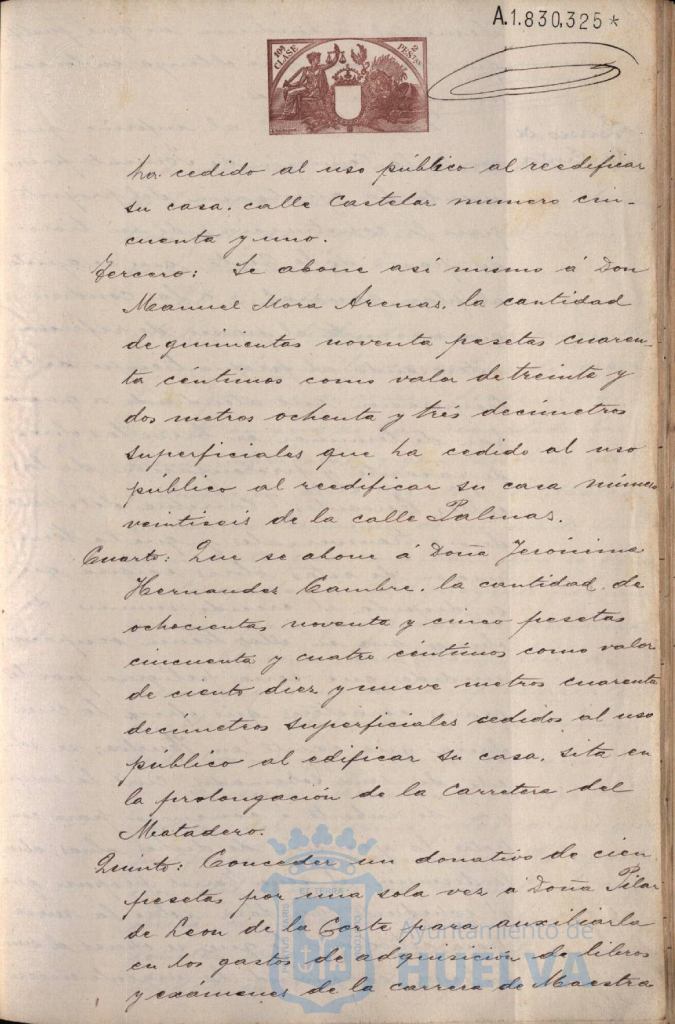 A.1.830,325*
10ª CLASE
2 PESTAS
ha cedido al uso público al reedificar
su casa, calle Castelar numero cin-
cuenta y uno.
Tercero: Se abone así mismo á Don
Manuel Mora Arenas, la cantidad
de quinientas noventa pesetas cuaren-
ta céntimos como valor de treinta y
dos metros ochenta y trés decímetros
superficiales que ha cedido al uso
público al reedificar su casa número
veintiseis de la calle Palmas.
Cuarto: Que se abone á Doña Jerónima
Hernandez Cambre, la cantidad de
ochocientas noventa y cinco pesetas
cincuenta y cuatro céntimos como valor
de ciento diez y nueve metros cuarenta
decímetros superficiales cedidos al uso
público al edificar su casa, sita en
la prolongación de la Carretera del
Matadero.
Quinto: Conceder un donativo de cien
pesetas por una sola vez á Doña Pilar
de Leon de la Corte para auxiliarla
en los gastos de adquisición de libros
y exámenes de la carrera de Maestra
Ayuntamiento de
HUELVA